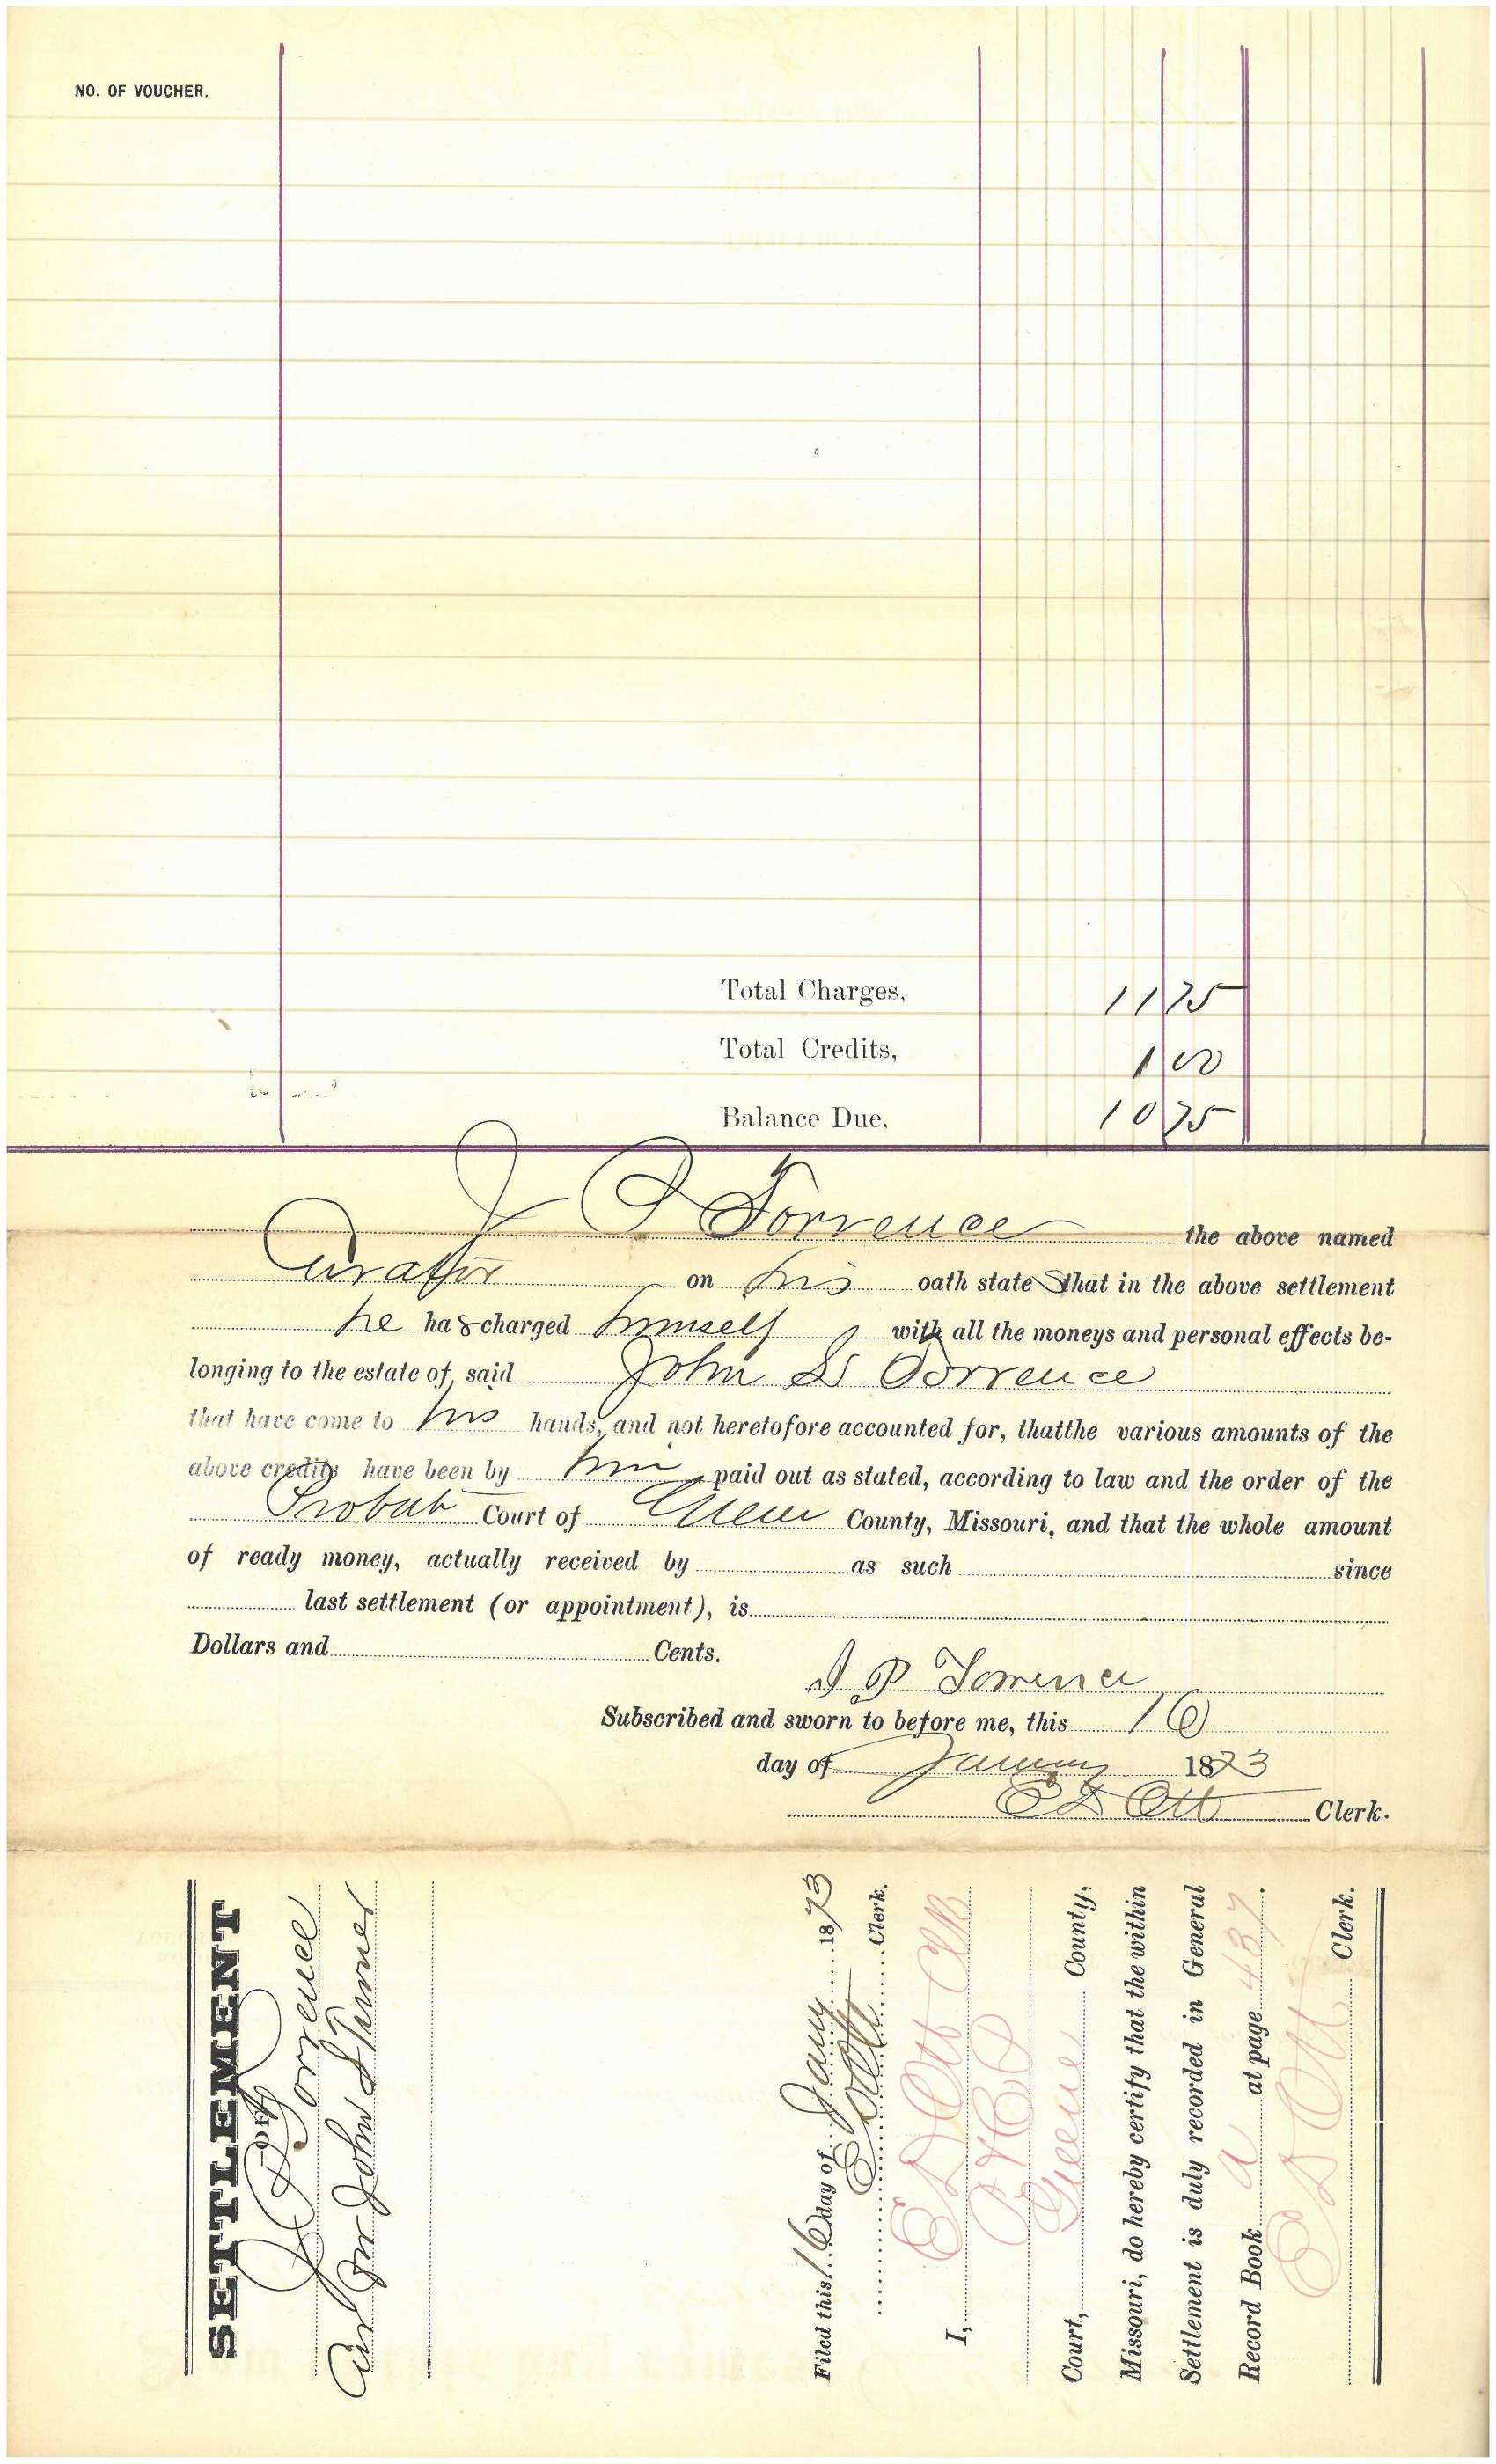 NO. OF VOUCHER.
Total Charges, 11 75
Total Credits, 1 00
Balance Due, 10 75
J P Torrence the above named
Curator on his oath states that in the above settlement
he has charged himself with all the moneys and personal effects be-
longing to the estate of said John S Torrence
that have come to his hands, and not heretofore accounted for, thatthe various amounts of the
above credits have been by him paid out as stated, according to law and the order of the
Probate Court of Greene County, Missouri, and that the whole amount
of ready money, actually received by as such since
last settlement (or appointment), is
Dollars and Cents.
J P Torrence
Subscribed and sworn to before me, this 16
day of January 1873
E D Ott Clerk.
SETTLEMENT
OF
J P Torrence
Cur for John S Turner
Filed this 16 day of Jany 1873
E D Ott Clerk.
I, E D Ott Clk
Court, Greene County,
Missouri, do hereby certify that the within
Settlement is duly recorded in General
Record Book A at page 437.
E D Ott Clerk.